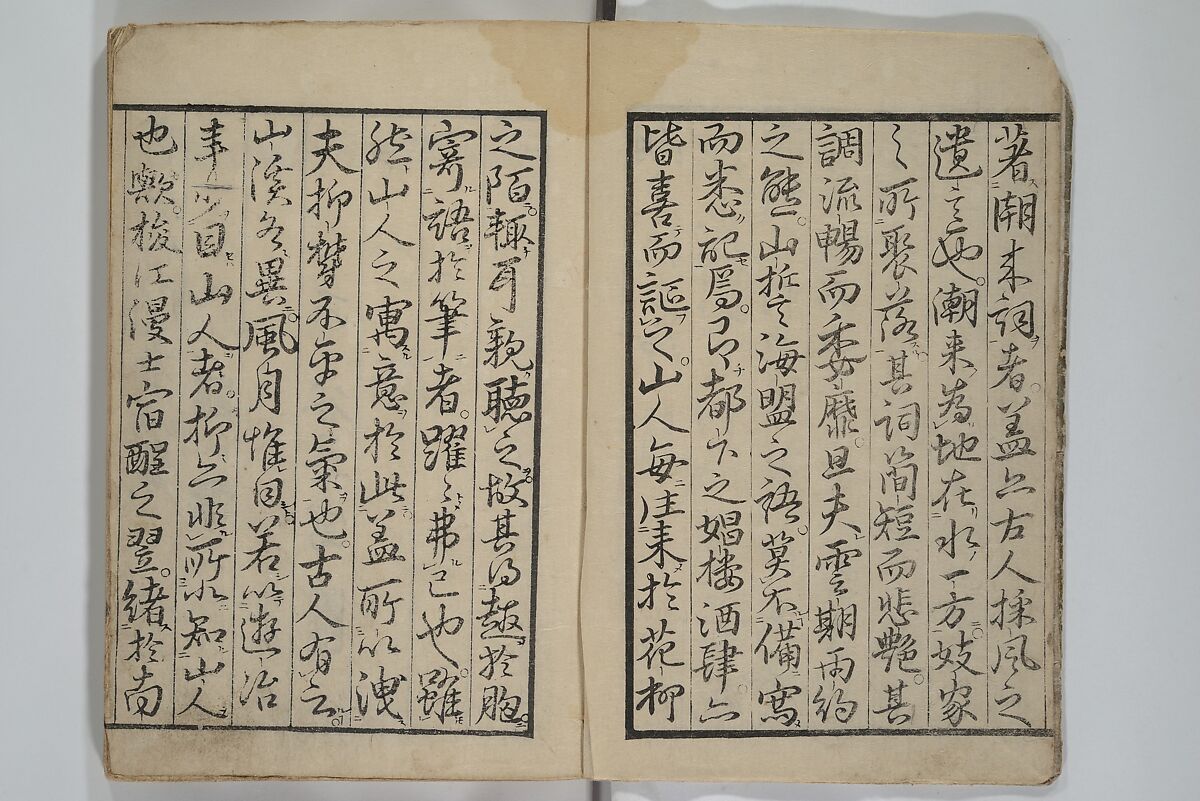 著潮来詞者蓋亦古人採風之
遺意也潮来為地在水一方妓家
之所聚落其詞簡短而悲艶其
調流暢而委靡且夫雲期雨約
之態山誓海盟之語莫不備寫
而悉記焉即都下之娼楼酒肆亦
皆喜而謳之山人毎往来於花柳
之陌輙耳親聴之故其得趣於胸
寄語於筆者躍々弗已也雖
然山人之寓意於此蓋所以洩
夫抑鬱不平之氣也古人有云
山渓各異風月惟同若以遊冶
事目山人者抑亦非所以知山人
也歟梭江漫士宿醒之翌緒於南